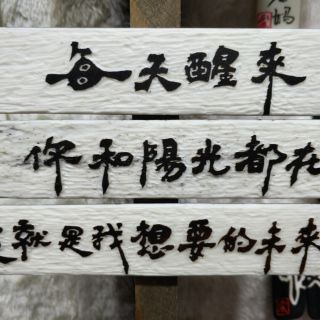 妈
每天醒來
你和陽光都在
就是我想要的未來